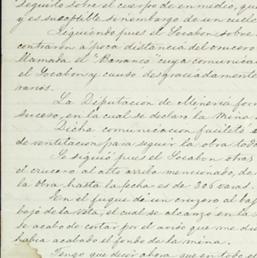 seguito sobre el cuerpo de en medio, que
y es susceptible sonembargo de un cuelo
Siguiendo pues el Socabon
contraron a poca distancia del crucero
llamaba el "Barranco" cuya comunicac
el Socabon y causo desgraciadamente
varios.
La Diputacion de Mineria for
suceso, en la cual se declara la Mina
Dicha comunicacion facilitó
de ventilacion para seguir la obra
Se siguió pues el Socabon
el crucero al alto arriba mencionado, de
la obra hasta la fecha es de 306 varas.
En el fugue de un cruzero al baj
bajo de la veta, el cual se alcanzo en la
se acabo de cortar por el amigo que me du
habia acabado el fondo de la mina.
Tengo que decir ahora que en todo el